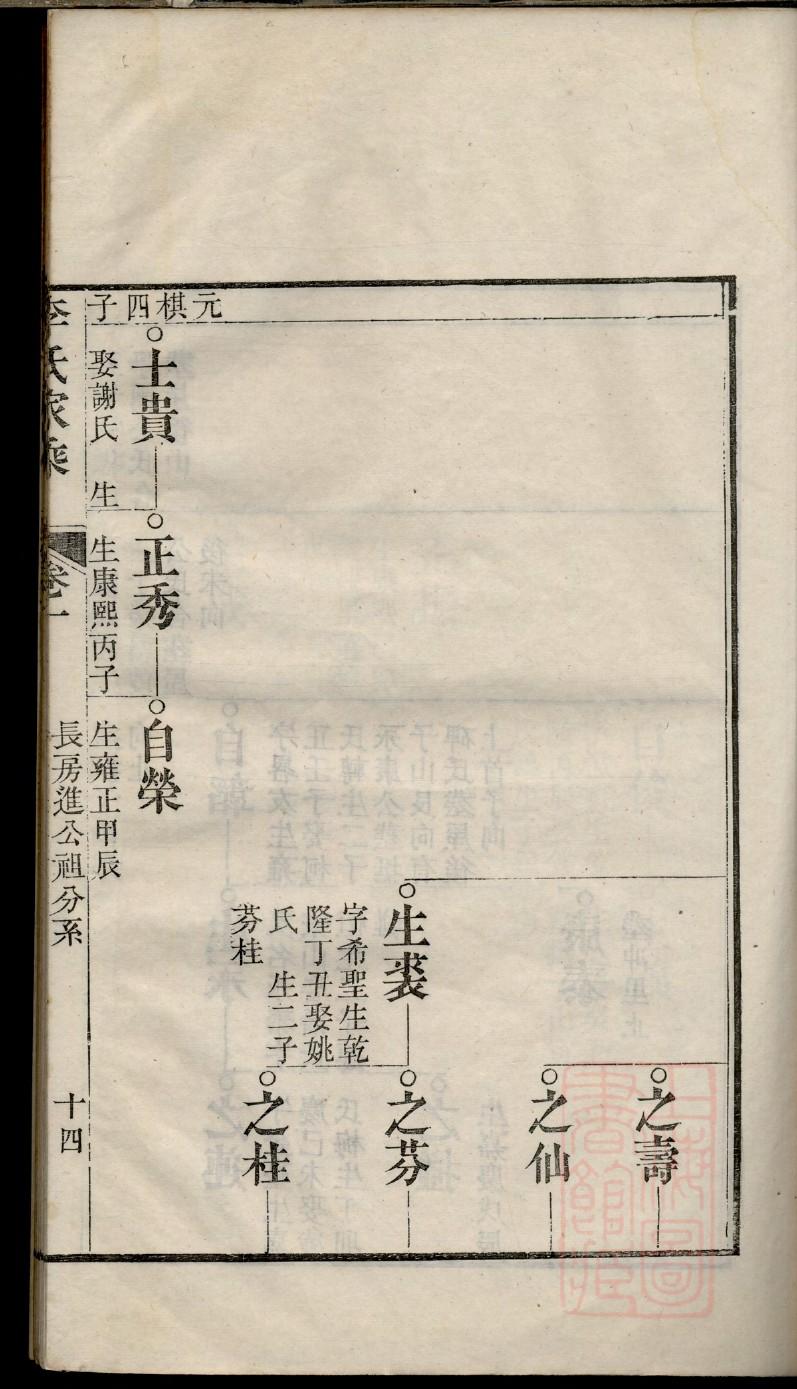 元棋四子
之壽
之仙
生裘
字希聖生乾
隆丁丑娶姚
氏 生二子
芬桂
之芬
之桂
士貴
娶謝氏 生
正秀
生康熙丙子
自榮
生雍正甲辰
李氏家乘
卷一
長房進公祖分系
十四